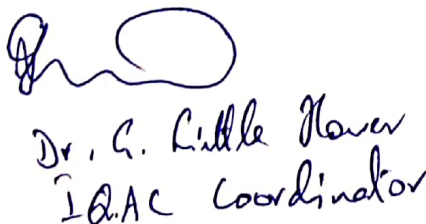 Dr. G. Little Flower
IQ.AC Coordinator